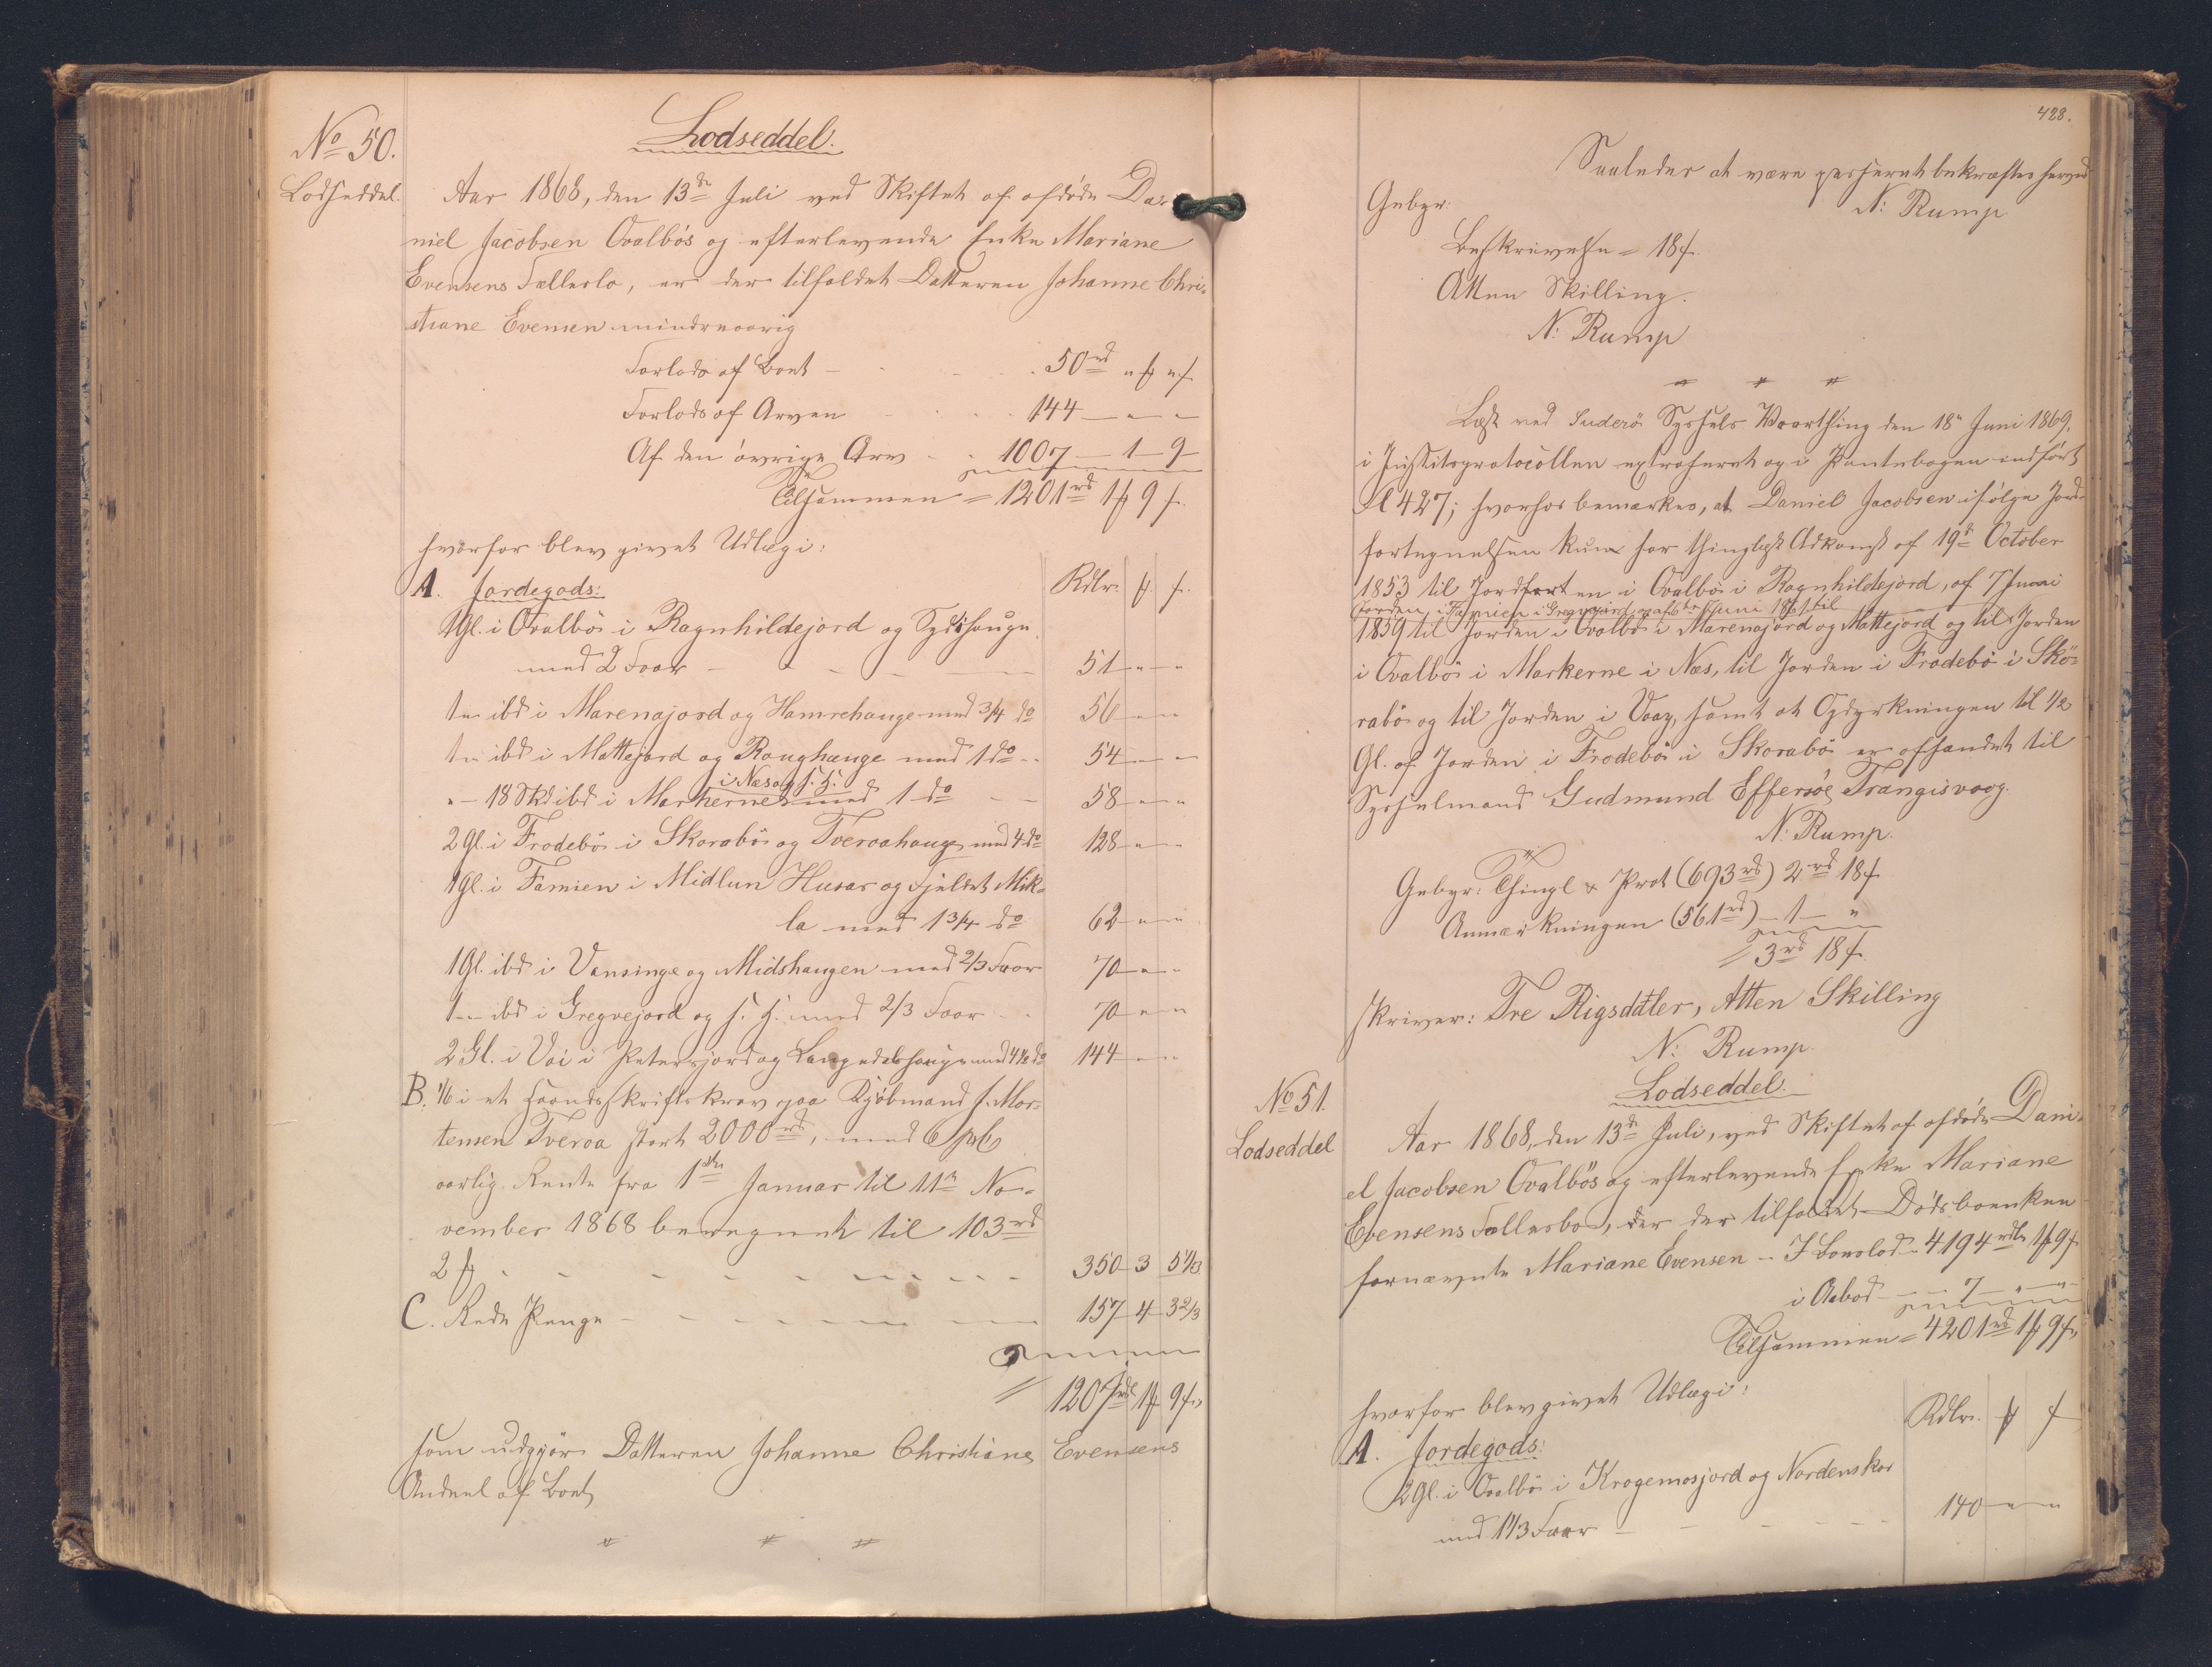 No 50.
Lodseddel.
Lodseddel.
Aar 1868, den 13de Juli ved Skiftet af afdøde Da-
niel Jacobsen Qvalbøs og efterlevende Enke Mariane
Evensens Fællesbo, er der tilfaldet Datteren Johanne Chri-
stiane Evensen mindreaarig
Forlods af Boet - 50rd " ℔ " ſ.
Forlods af Arven - 144 - " - "
Af den øvrige Arv - 1007 - 1 - 9
Tilsammen = 1201rd 1 ℔ 9 ſ.
hvorfor blev givet Udlæg i:
A. Jordegods: Rdlr. ℔. ſ.
1 Gl. i Qvalbø i Ragnhildejord og Sydihauge
med 2 Faar - 51 - " - "
1 - ibd i Marenajord og Hamrehauge med 3/4 do 56 - " - "
1 - ibd i Mattejord og Rough­auge med 1 do - 54 - " - "
i Næs og f. H.
" - 18 Skd ibd i Markerne med 1 do - 58 - " - "
2 Gl. i Frodebø i Skarabø og Tveraahauge med 4 do 128 - " - "
1 Gl. i Famien i Midlun Husar og Fjeldet Mik-
la med 1 3/4 do 62 - " - "
1 Gl. ibd i Vansinge og Midshaugen med 2/3 Faar 70 - " - "
1 - ibd i Gregvejord og f. H. med 2/3 Faar - 70 - " - "
2 Gl. i Vai i Petersjord og Langedalshauge med 4 1/2 do 144 - " - "
B. 1/6 i et Haandskriftskrav paa Kjøbmand J. Mor-
tensen Tveraa stort 2000rd, med 6 pCt
aarlig Rente fra 1ste Januar til 11te No-
vember 1868 beregnet til 103rd
2 ℔ - 350 - 3 5 1/3
C. Rede Penge - 157 - 4 - 3 2/3
= 1201rd 1 ℔ 9 ſ.
som udgjør Datteren Johanne Christiane Evensens
Andeel af Boet
" " "
428.
Saaledes at være passeret bekræftes herved
N: Rump
Gebyr:
Beskrivelse = 18 ſ.
Atten Skilling.
N: Rump
" " "
Læst ved Suderø Syssels Vaarthing den 18de Juni 1869,
i Justitsprotocollen extraheret og i Pantebogen indført
Fol 427; hvorhos bemærkes, at Daniel Jacobsen ifølge Jord-
fortegnelsen kun har thinglæst Adkomst af 19de October
1853 til Jordparten i Qvalbø i Ragnhildejord, af 7 Juni
Jorden i Famien i Gregvejord og af 6te Juni 1861 til
1859 til Jorden i Qvalbø i Marenajord og Mattejord og til Jorden
i Qvalbø i Markerne i Næs, til Jorden i Frodebø i Skö-
rabø og til Jorden i Vaag, samt at Opdyrkningen til 1/2
Gl. af Jorden i Frodebø i Skorabø er afhændet til
Sysselmand Gudmund Effersøe Trangisvaag.
N: Rump.
Gebyr: Thingl & Prot (693rd) 2rd 18 ſ
Anmærkningen (561rd) - 1 - "
= 3rd 18 ſ.
skriver: Tre Rigsdaler, Atten Skilling
N: Rump.
No 51.
Lodseddel
Lodseddel.
Aar 1868, den 13de Juli, ved Skiftet af afdøde Dani-
el Jacobsen Qvalbøs og efterlevende Enke Mariane
Evensens Fællesbo, er der tilfaldet Dødsboenken
fornævnte Mariane Evensen - I Boeslod - 4194rdl 1 ℔ 9 ſ
i Aabod - 7 - " - "
Tilsammen = 4201rd 1 ℔ 9 ſ.
hvorfor blev givet Udlæg i:
Rdlr. ℔ ſ
A. Jordegods:
2 Gl. i Qvalbø i Krogemosjord og Nordenskor
med 1 1/3 Faar - 140 - " - "